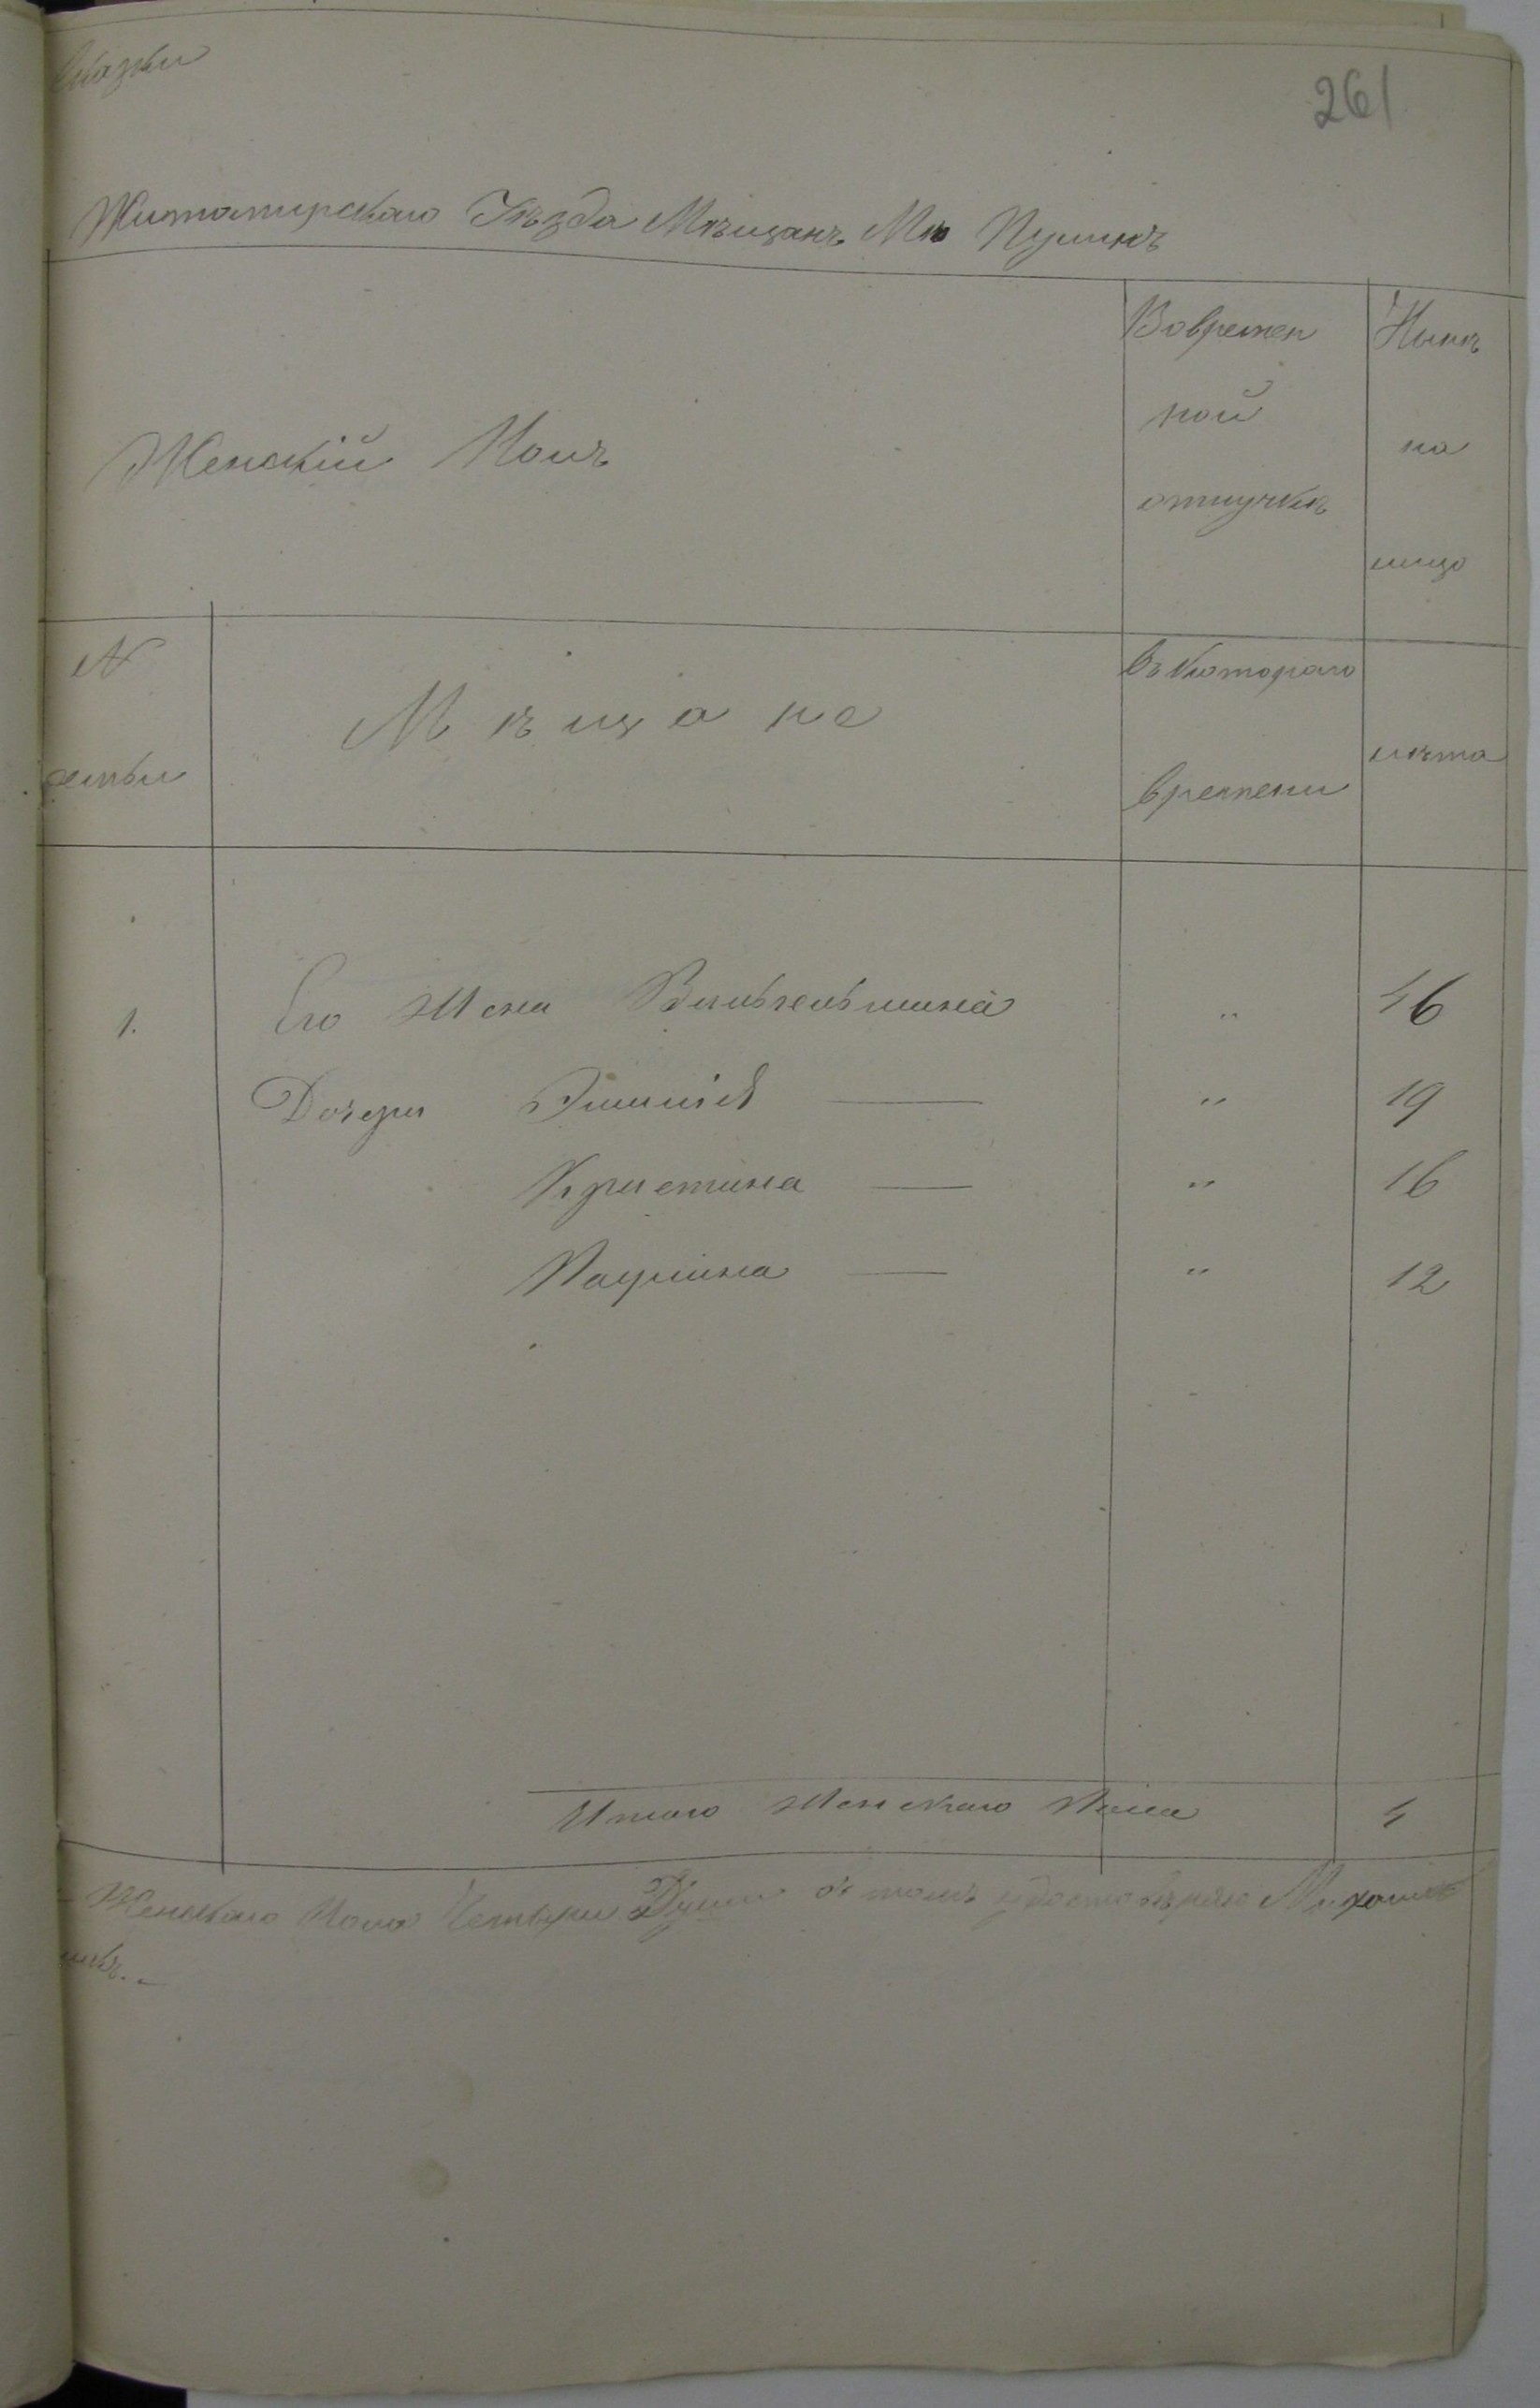 Сказки
261
Житомирскаго Уѣзда Мѣщанъ Мѣ Пулинъ
Женскій Полъ
Вовремен
ной
отлучкѣ
Нынѣ
на
лицо
№
семьи
Мѣщане
съ котораго
времени
лѣта
1. Его Жена Вильгельмина " 46
Дочери Эмилія " 19
Кристина " 16
Паулина " 12
Итого Женскаго Пола 4
Женскаго Пола Четыри Души в томъ удостовѣряю